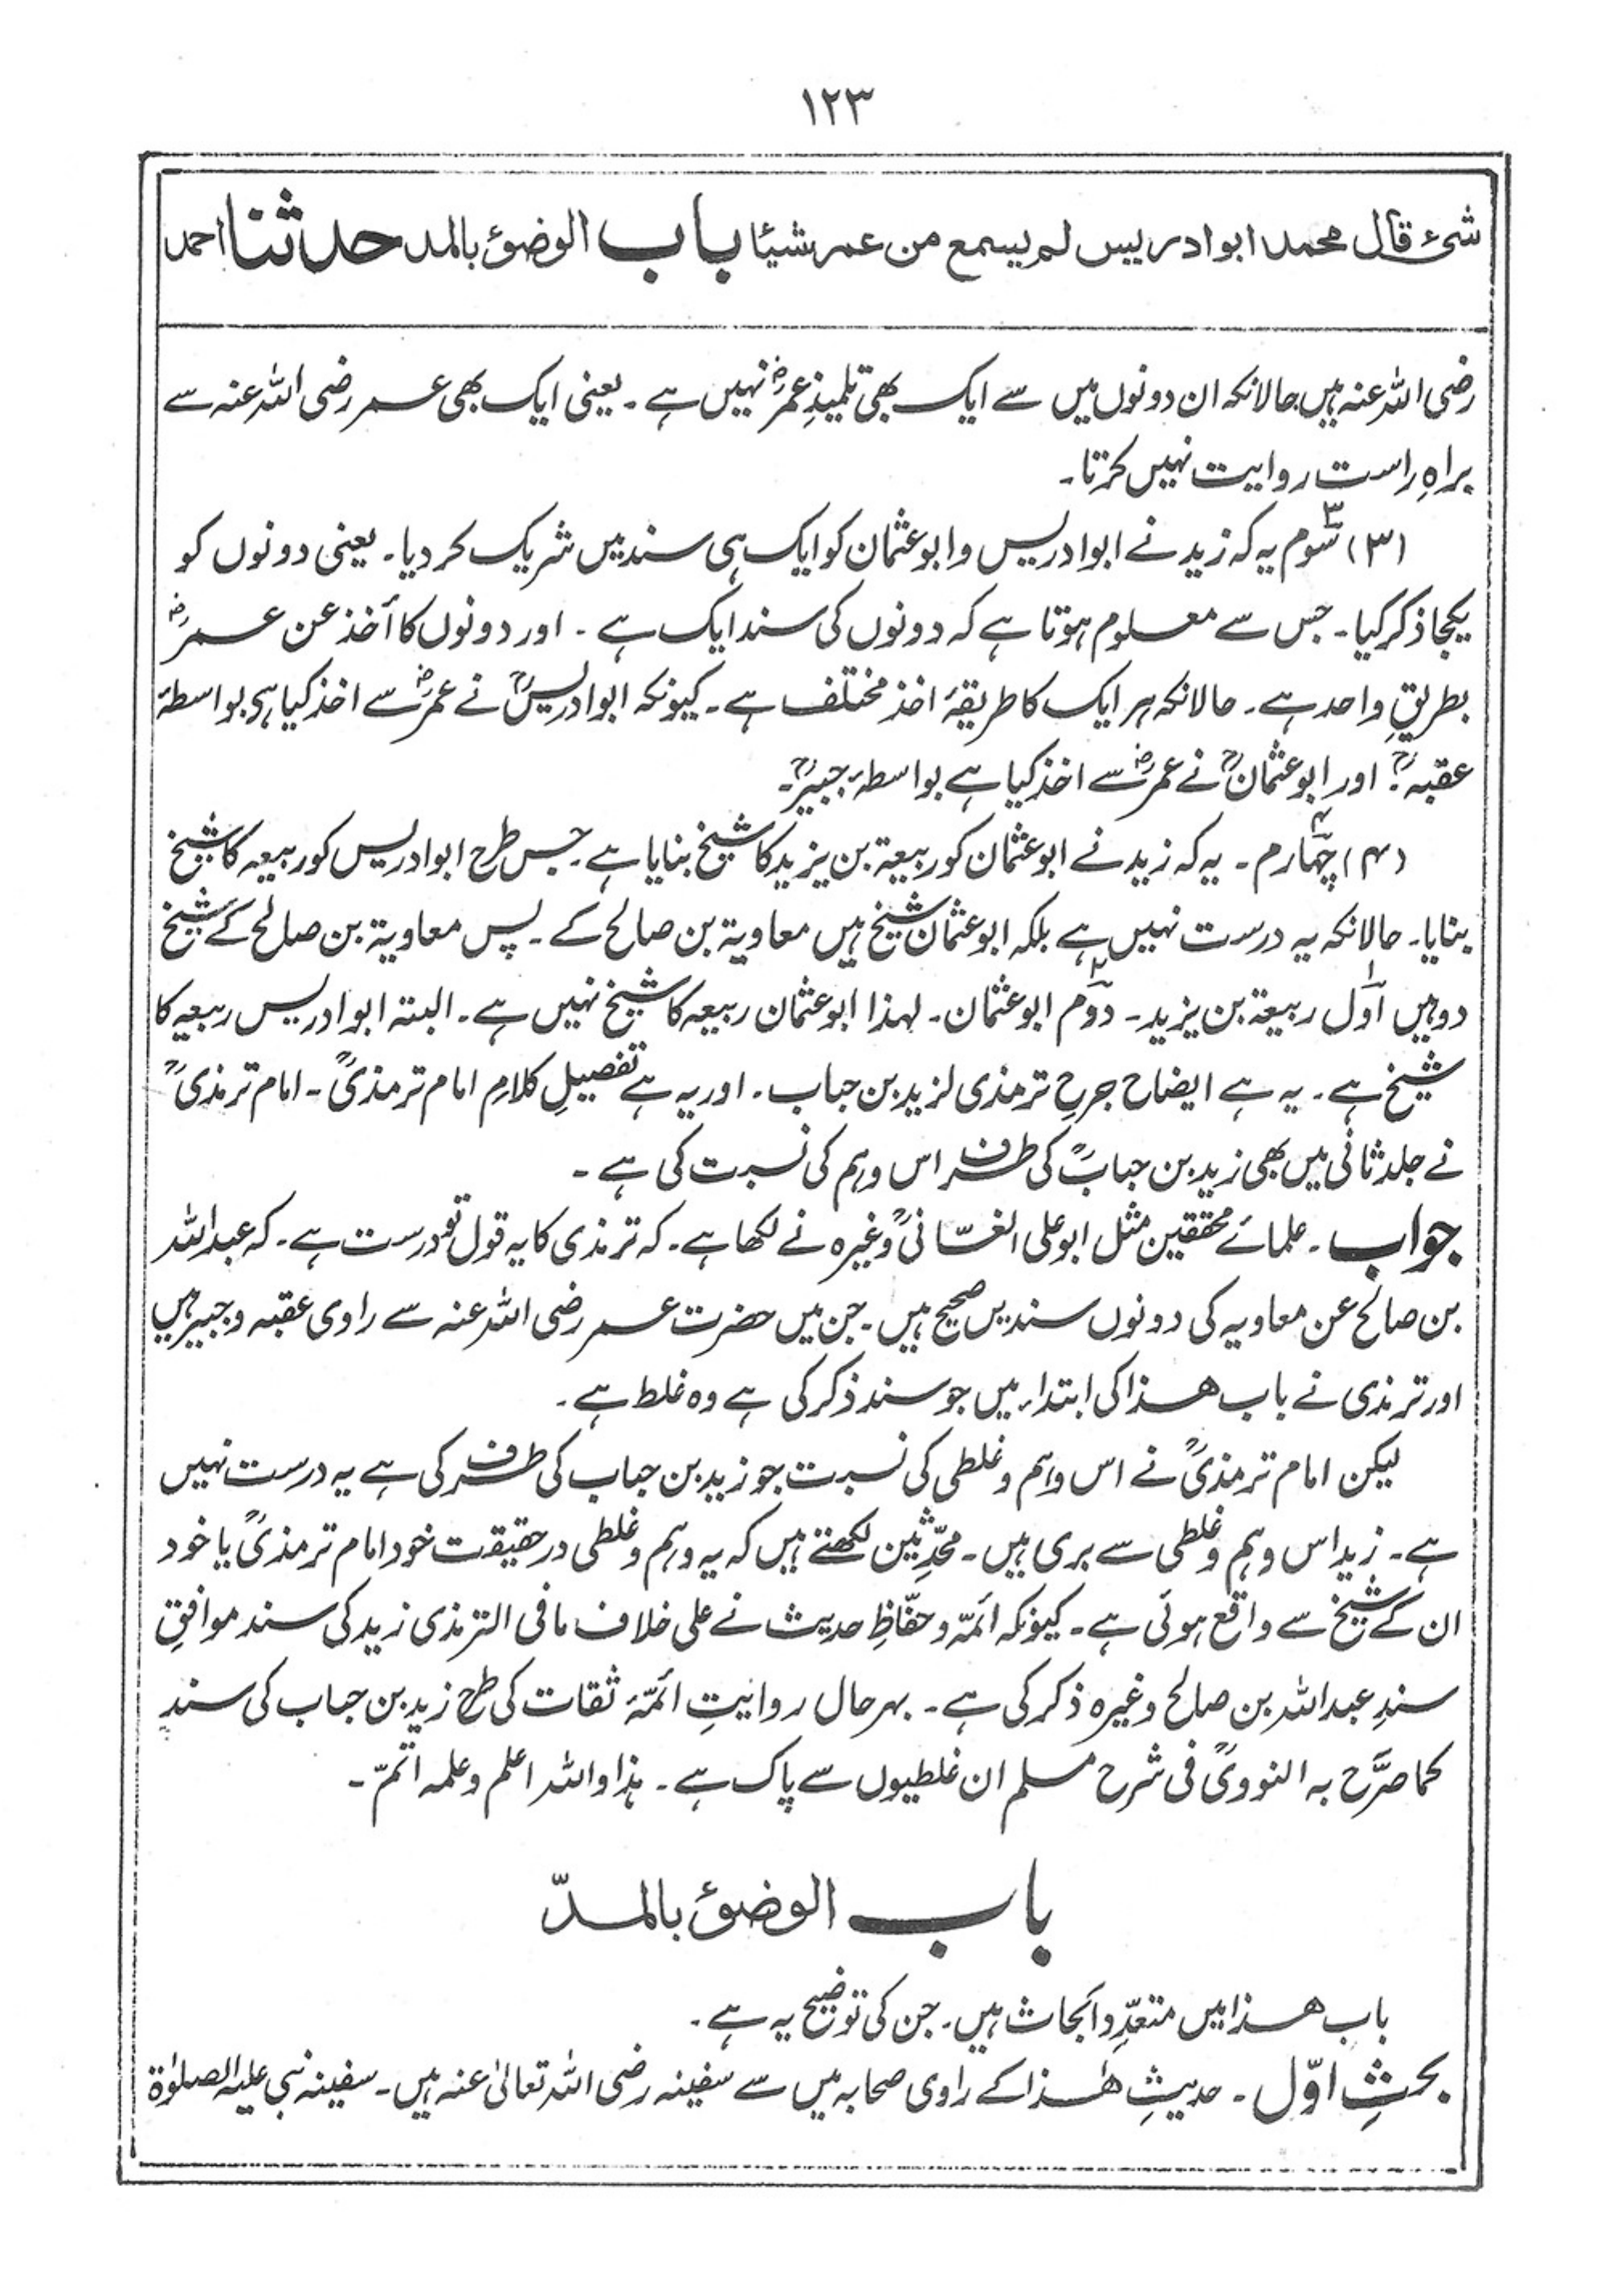 ۱۲۳
شئ قال محمد ابو ادریس لم یسمع من عمر شیئا باب الوضوئ بالمد حدثنا احمد
رضی اللہ عنہ ہیں حالانکہ ان دونوں میں سے ایک بھی تلمیذِ عمرؓ نہیں ہے ۔ یعنی ایک بھی عمر رضی اللہ عنہ سے
براہِ راست روایت نہیں کرتا۔
(۳) سوم یہ کہ زید نے ابوادریس وابوعثمان کو ایک ہی سند میں شریک کردیا۔ یعنی دونوں کو
یکجا ذکر کیا۔ جس سے معلوم ہوتا ہے کہ دونوں کی سند ایک ہے ۔ اور دونوں کا أخذ عن عمرؓ
بطریقِ واحد ہے۔ حالانکہ ہر ایک کا طریقۂ اخذ مختلف ہے۔ کیونکہ ابوادریسؒ نے عمرؓ سے اخذ کیا ہی بواسطۂ
عقبہؒ ۔ اور ابوعثمانؒ نے عمرؓ سے اخذ کیا ہے بواسطہ جبیرؒ۔
(۴) چہارم ۔ یہ کہ زید نے ابوعثمان کو ربیعۃ بن یزید کا شیخ بنایا ہے۔ جس طرح ابوادریس کو ربیعہ کا شیخ
بنایا۔ حالانکہ یہ درست نہیں ہے بلکہ ابوعثمان شیخ ہیں معاویۃ بن صالح کے۔ پس معاویۃ بن صالح کے شیخ
دو ہیں اوّل ربیعۃ بن یزید۔ دوّم ابوعثمان۔ لہذا ابوعثمان ربیعہ کا شیخ نہیں ہے۔ البتہ ابوادریس ربیعہ کا
شیخ ہے۔ یہ ہے ایضاح جرحِ ترمذی لزید بن حباب۔ اور یہ ہے تفصیلِ کلامِ امام ترمذیؒ ۔ امام ترمذیؒ
نے جلد ثانی میں بھی زید بن حبابؒ کی طرف اس وہم کی نسبت کی ہے ۔
جواب ۔ علمائے محققین مثل ابوعلی الغسّانیؒ وغیرہ نے لکھا ہے۔ کہ ترمذی کا یہ قول تو درست ہے۔ کہ عبداللہ
بن صالح عن معاویہ کی دونوں سندیں صحیح ہیں۔ جن میں حضرت عمر رضی اللہ عنہ سے راوی عقبہ وجبیر ہیں
اور ترمذی نے باب ھذا کی ابتداء میں جو سند ذکر کی ہے وہ غلط ہے۔
لیکن امام ترمذیؒ نے اس وہم وغلطی کی نسبت جو زید بن حباب کی طرف کی ہے یہ درست نہیں
ہے۔ زید اس وہم وغلطی سے بری ہیں۔ محدِّثین لکھتے ہیں کہ یہ وہم وغلطی درحقیقت خود امام ترمذیؒ یا خود
ان کے شیخ سے واقع ہوئی ہے۔ کیونکہ ائمّہ وحفّاظِ حدیث نے علی خلاف مافی الترمذی زید کی سند موافقِ
سندِ عبداللہ بن صالح وغیرہ ذکر کی ہے۔ بہرحال روایتِ ائمّۂ ثقات کی طرح زید بن حباب کی سند
کما صرَّح بہ النوویؒ فی شرح مسلم ان غلطیوں سے پاک ہے۔ ہذا واللہ اعلم وعلمہ اتمّ۔
باب الوضوئ بالمدّ
باب ھذا میں متعدّد ابحاث ہیں۔ جن کی توضیح یہ ہے۔
بحثِ اوّل ۔ حدیثِ ھٰذا کے راوی صحابہ میں سے سفینہ رضی اللہ تعالیٰ عنہ ہیں۔ سفینہ نبی علیہ الصلوٰۃ